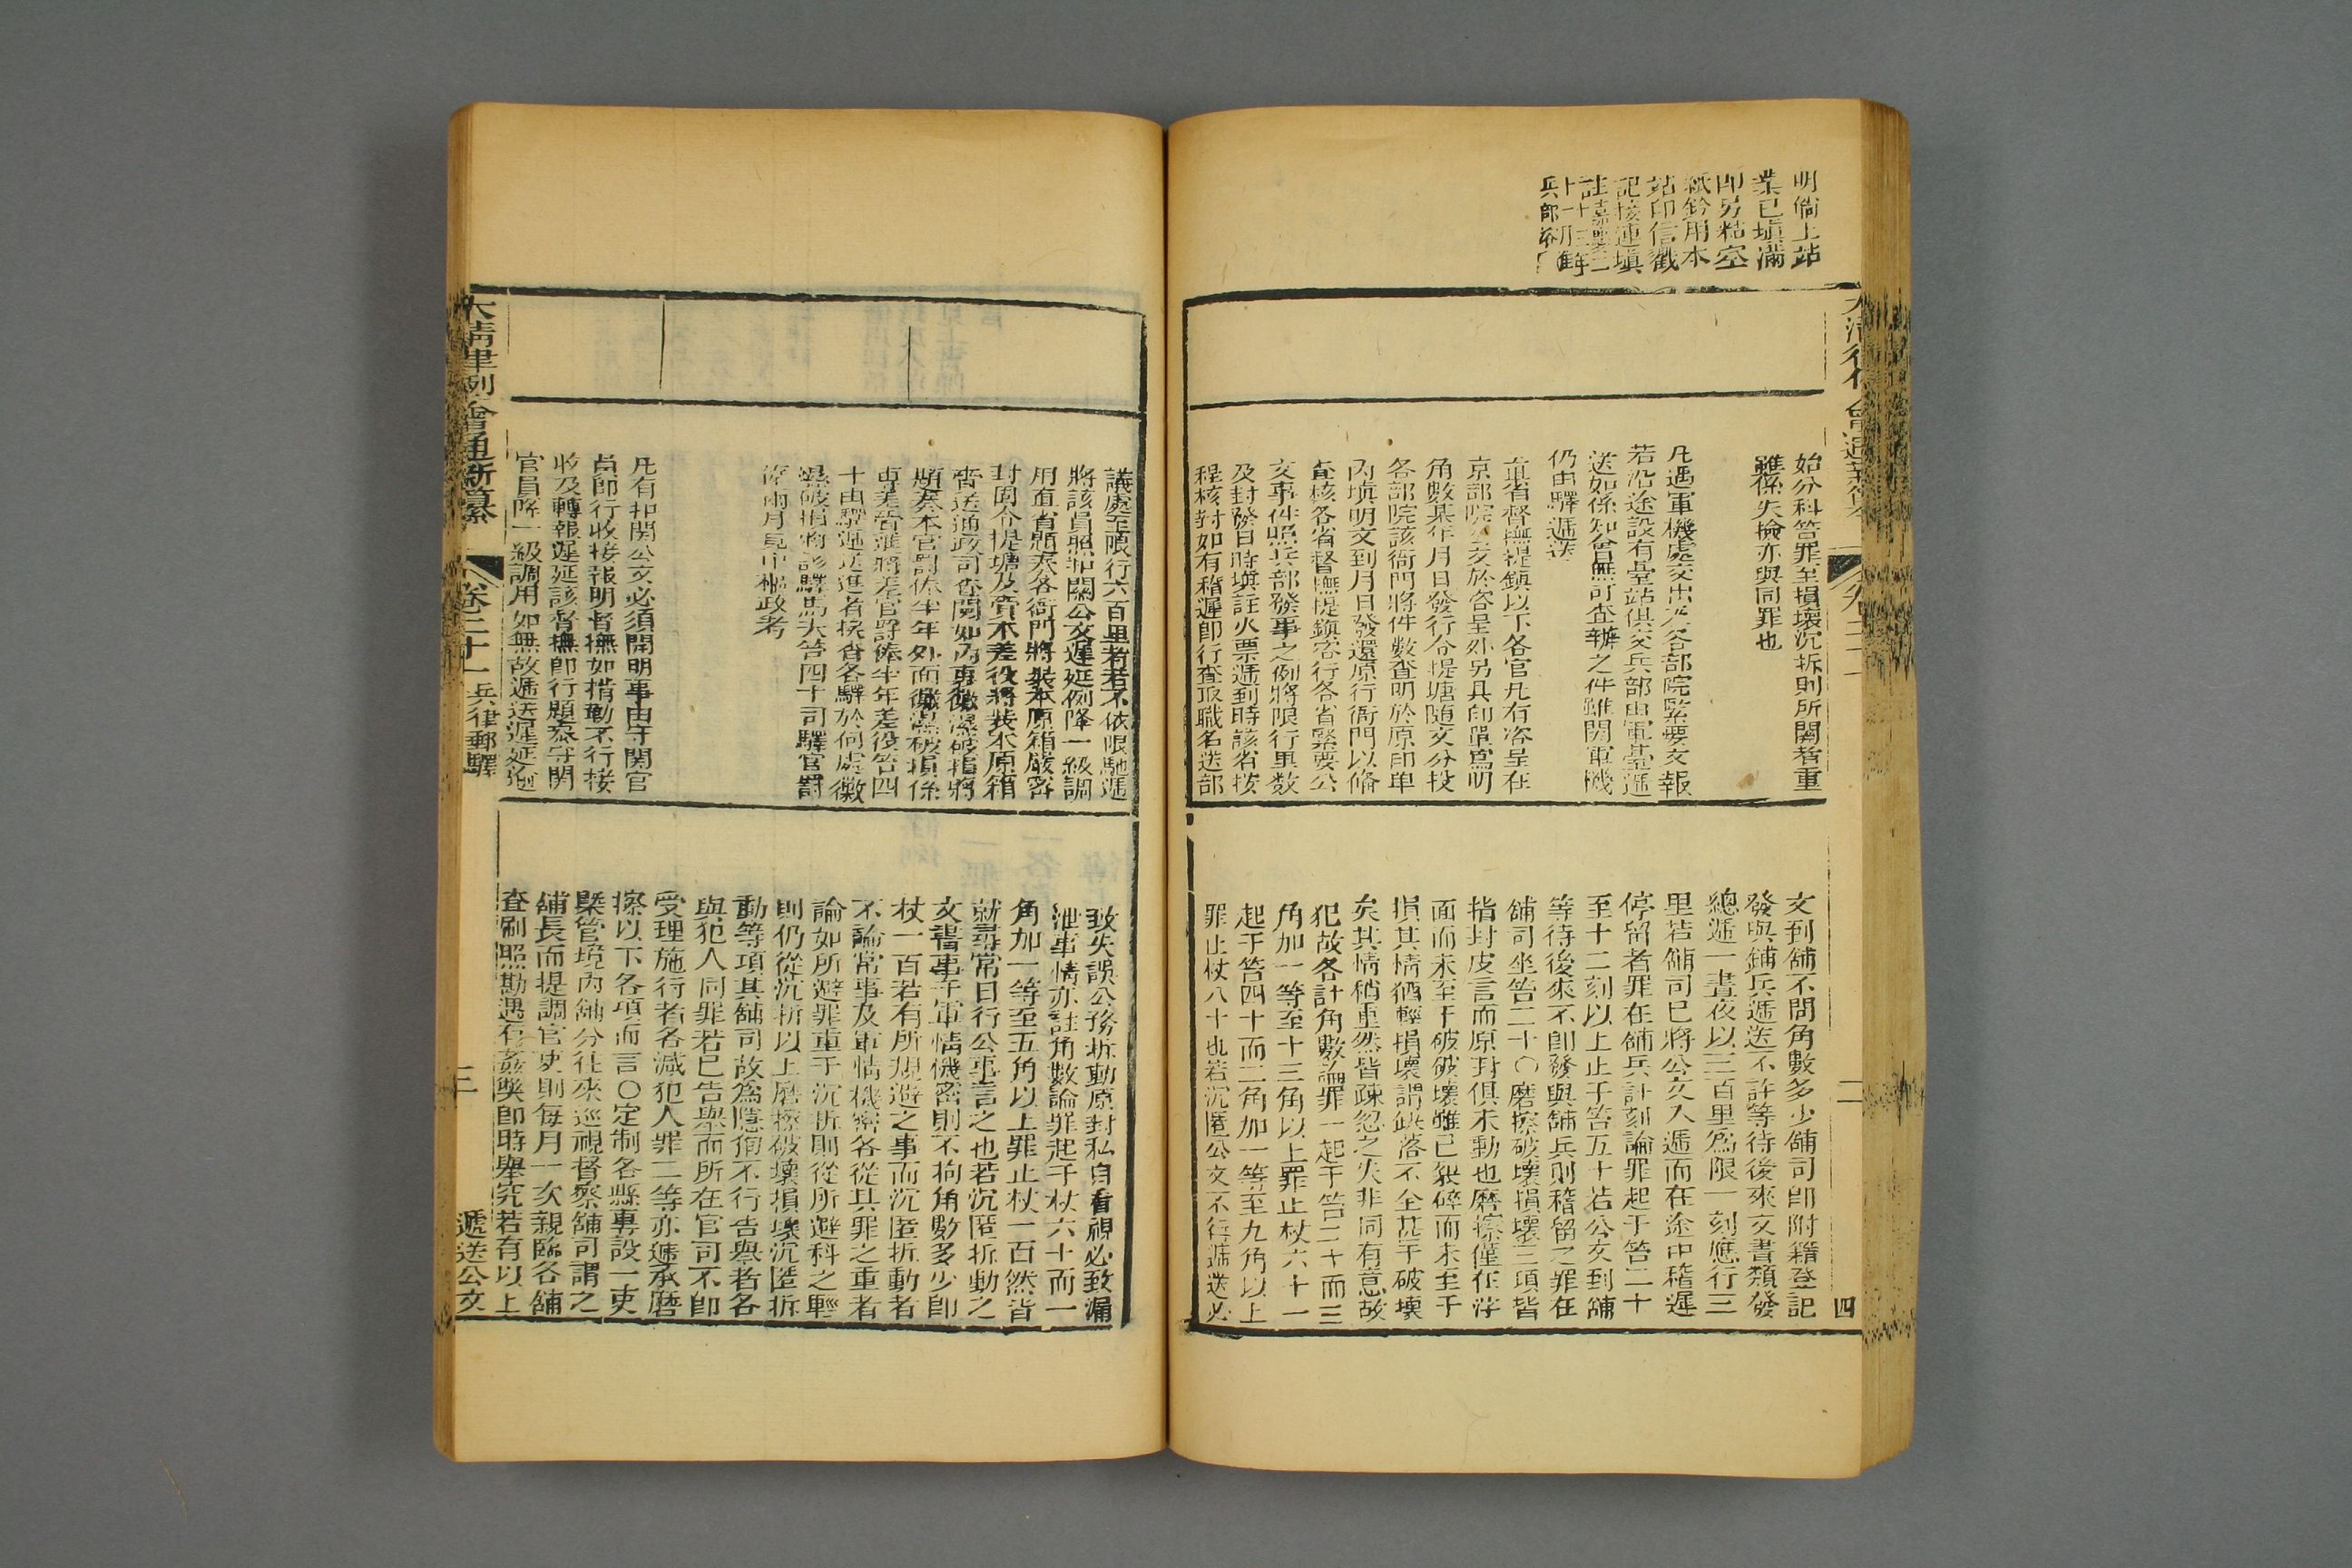 明倘上站
業已填滿
即另粘空
紙鈐用本
站印信戳
記核連填
註
兵部
始分科笞罪至損壞沉拆則所關者重
雖係失檢亦與同罪也
凡遇軍機處交出及各部院緊要文報
若沿途設有臺站俱交兵部由軍臺遞
送如係知會無可查辦之件雖関軍機
仍由驛遞送
直省督撫提鎮以下各官凡有咨呈在
京部院公文於咨呈外另具印單寫明
角數某年月日發行分提塘随文分投
各部院該衙門將件數查明於原印单
內填明文到月日發還原行衙門以俻
查核各省督撫提鎮咨行各省緊要公
文事件照兵部發事之例將限行里数
及封發日時填註火票遞到時該省按
程核對如有稽遲即行查取職名送部
文到舖不問角數多少舖司即附籍登記
發與鋪兵遞送不許等待後來文書類發
總遞一晝夜以三百里爲限一刻應行三
里若舖司已將公文入遞而在途中稽遲
停留者罪在舖兵計刻論罪起于笞二十
至十二刻以上止于笞五十若公文到舖
等待後來不卽發與舖兵則稽留之罪在
舖司坐笞二十〇磨擦破壞損壞三項皆
指封皮言而原封俱未動也磨擦僅在浮
面而未至于破破壞雖已裂碎而未至于
損其情猶輕損壞謂缺落不全甚于破壞
矣其情稍重然皆疎忽之失非同有意故
犯故各計角數論罪一起于笞二十而三
角加一等至十三角以上罪止杖六十一
起于笞四十而二角加一等至九角以上
罪止杖八十也若沉匿公文不行遞送必
四
議處至限行六百里者若不依限馳遞
將該員照扣關公文遲延例降一級調
用直省題奏各衙門將裝本原箱嚴密
封固令提塘及賫本差役將裝本原箱
賫送通政司查閱如內事徽濕破指將
題奏本官罰俸半年外而徽濕破損係
專差賫進將差官罰俸半年差役笞四
十由驛遞送進者挨查各驛於何處徽
濕破損將該驛馬夫笞四十司驛官罰
俸兩月見中樞政考
凡有扣関公文必須開明事由守関官
員即行收接報明督撫如指勒不行接
收及轉報遲延該督撫即行題叅守関
官員降一級調用如無故遞送遲延逾
致失誤公務拆動原封私自看視必致漏
泄事情亦計角數論罪起于杖六十而一
角加一等至五角以上罪止杖一百然皆
就尋常日行公事言之也若沉匿拆動之
文書事干軍情機密則不拘角數多少卽
杖一百若有所規避之事而沉匿拆動者
不論常事及軍情機密各從其罪之重者
論如所避罪重于沉拆則從所避科之輕
則仍從沉拆以上磨擦破壞損壞沉匿拆
動等項其舖司故爲隱徇不行告舉者各
與犯人同罪若已告舉而所在官司不卽
受理施行者各減犯人罪二等亦連承磨
擦以下各項而言〇定制各縣專設一吏
槩管境內舖分往來巡視督察舖司謂之
舖長而提調官吏則每月一次親臨各舖
查刷照勘遇有姦獘卽時舉究若有以上
大清律例會通新纂
卷二十一 兵律郵驛
三
遞送公文